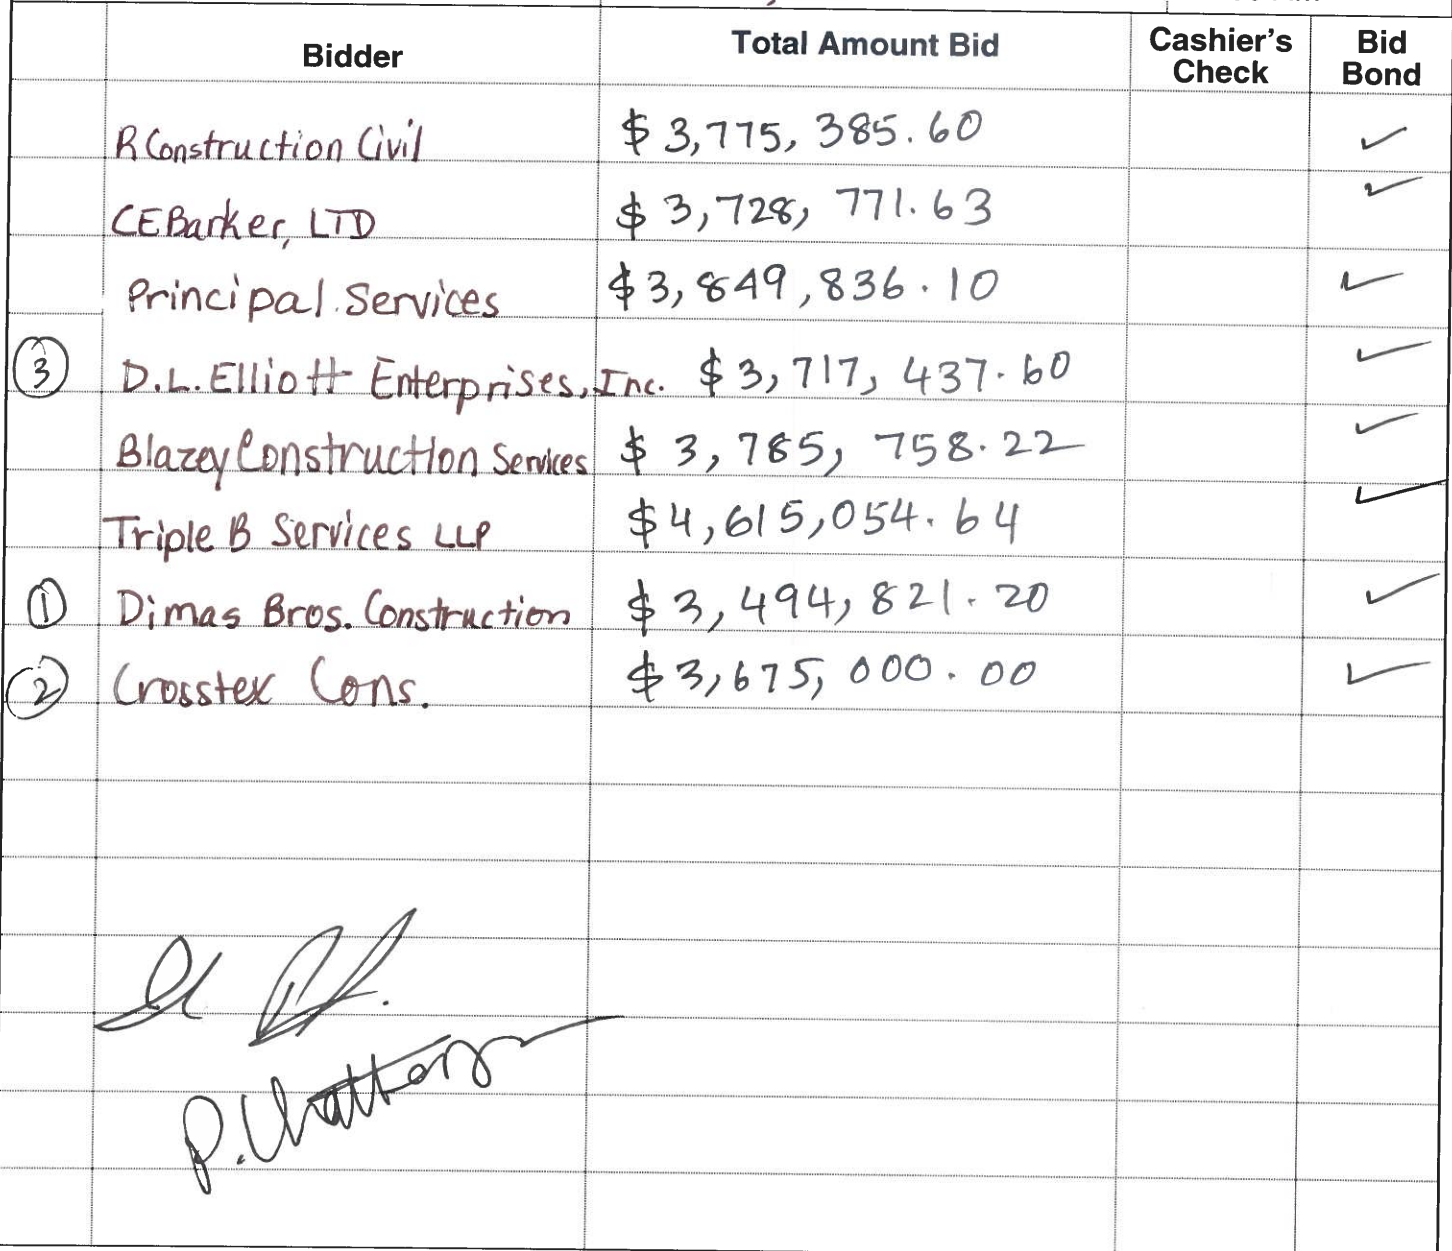 Bidder Total Amount Bid Cashier's Check Bid Bond
R Construction Civil $ 3,775, 385.60 ✓
CE Barker, LTD $ 3,728, 771.63 ✓
Principal Services $3,849,836.10 ✓
③ D.L. Elliott Enterprises, Inc. $ 3,717, 437.60 ✓
Blazey Construction Services $ 3,785, 758.22 ✓
Triple B Services LLP $4,615,054.64 ✓
① Dimas Bros. Construction $ 3,494,821.20 ✓
② Crosstex Cons. $3,675,000.00 ✓